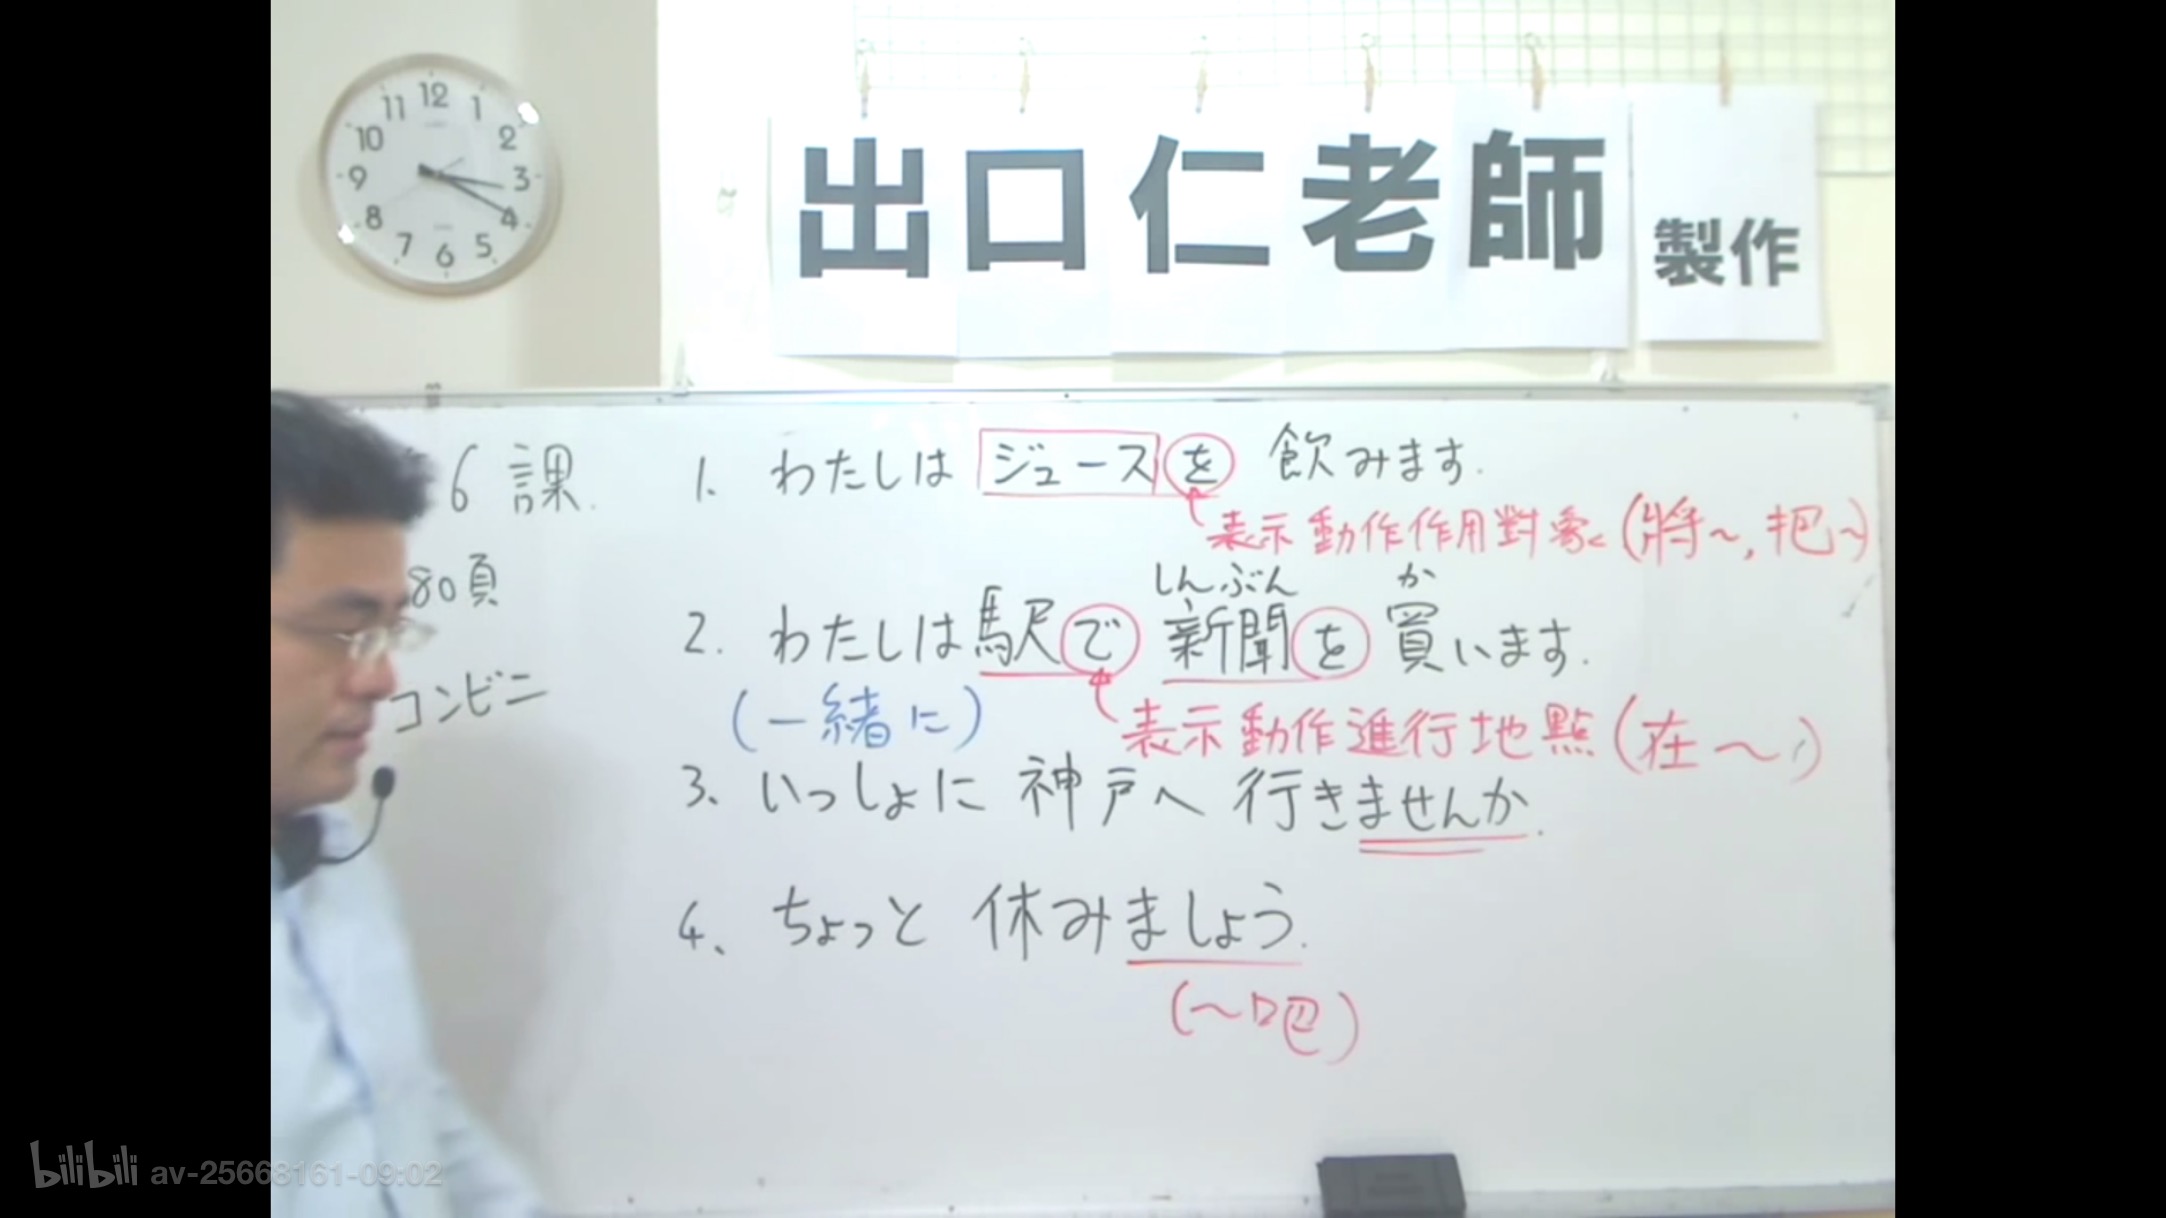 12 1 2 3 4 5 6 7 8 9 10 11
出口仁老師 製作
6課.
80頁
コンビニ
1. わたしは ジュースを 飲みます.
表示動作作用對象 (將~, 把~)
しんぶん か
2. わたしは駅で 新聞を 買います.
(一緒に)
表示動作進行地點 (在~)
3. いっしょに 神戸へ 行きませんか.
4. ちょっと 休みましょう.
(~吧)
bilibili av-25668161-09:02